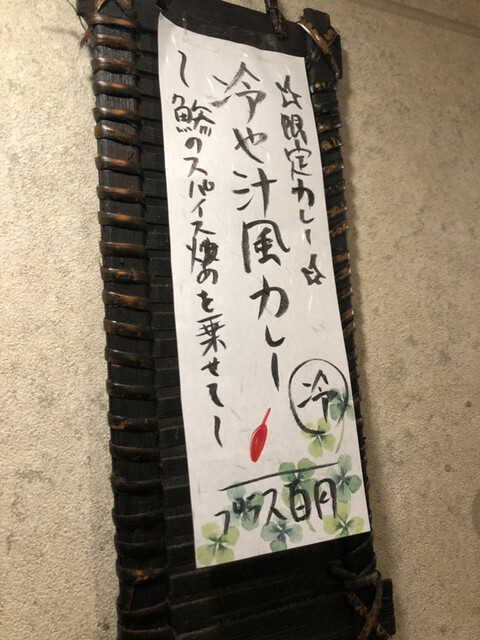 ☆限定カレー☆
冷や汁風カレー
〜鯵のスパイス焼めを乗せて〜
冷
プラス百円